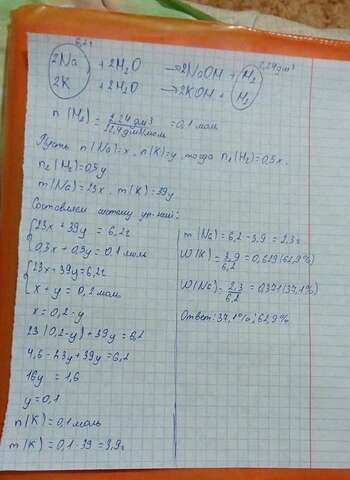 6,2г
2Na + 2H₂O → 2NaOH + H₂ 2,24 дм³
2K + 2H₂O → 2KOH + H₂
n(H₂) = 2,24 дм³ / 22,4 дм³/моль = 0,1 моль
Пусть n(Na)=x, n(K)=y, тогда n₁(H₂)=0,5x.
n₂(H₂)=0,5y
m(Na)=23x, m(K)=39y
Составляем систему ур-ний:
23x + 39y = 6,2г
0,5x + 0,5y = 0,1 моль
23x + 39y = 6,2г
x + y = 0,2 моль
x = 0,2-y
23(0,2-y) + 39y = 6,2
4,6 - 23y + 39y = 6,2
16y = 1,6
y = 0,1
n(K) = 0,1 моль
m(K) = 0,1·39 = 3,9г
m(Na) = 6,2 - 3,9 = 2,3г
W(K) = 3,9 / 6,2 = 0,629 (62,9%)
W(Na) = 2,3 / 6,2 = 0,371 (37,1%)
Ответ: 37,1%; 62,9%